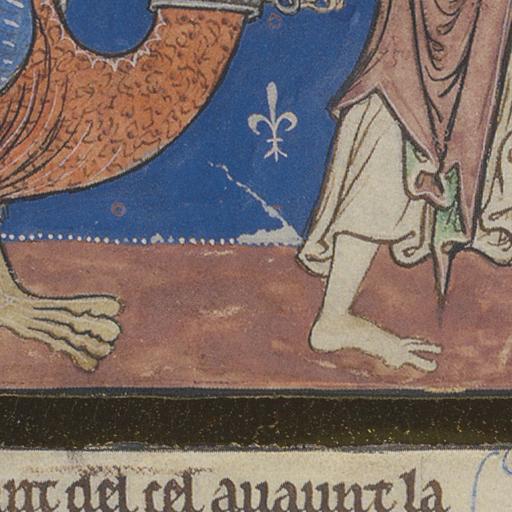 del cel auaunt la